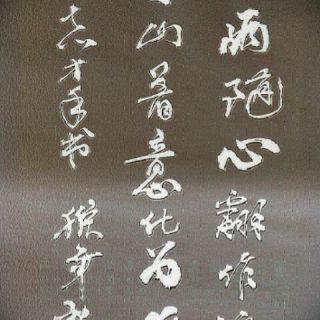 雨随心翻作
山着意化为
志才手书 猴年